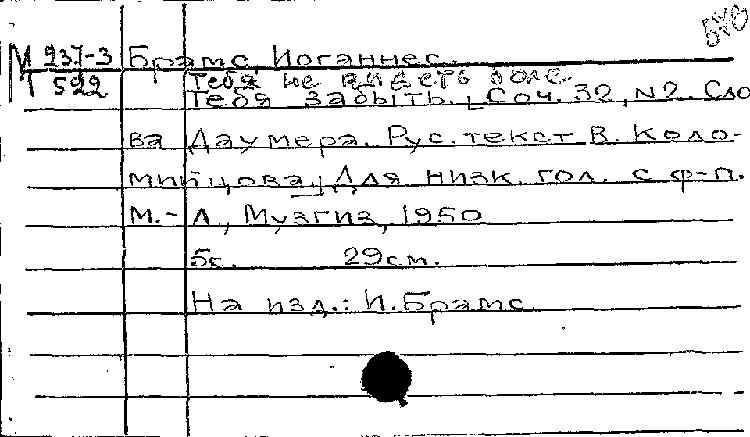 578
М 237-3 Брамс Иоганнес.
522 Тебя не видеть боле.
Тебя забыть. [Соч. 32, N2. Сло
ва Даумера. Рус. текст В. Коло-
мийцова.] Для низк. гол. с ф-п.
М.-Л., Музгиз, 1950
5с. 29см.
На изд.: И. Брамс